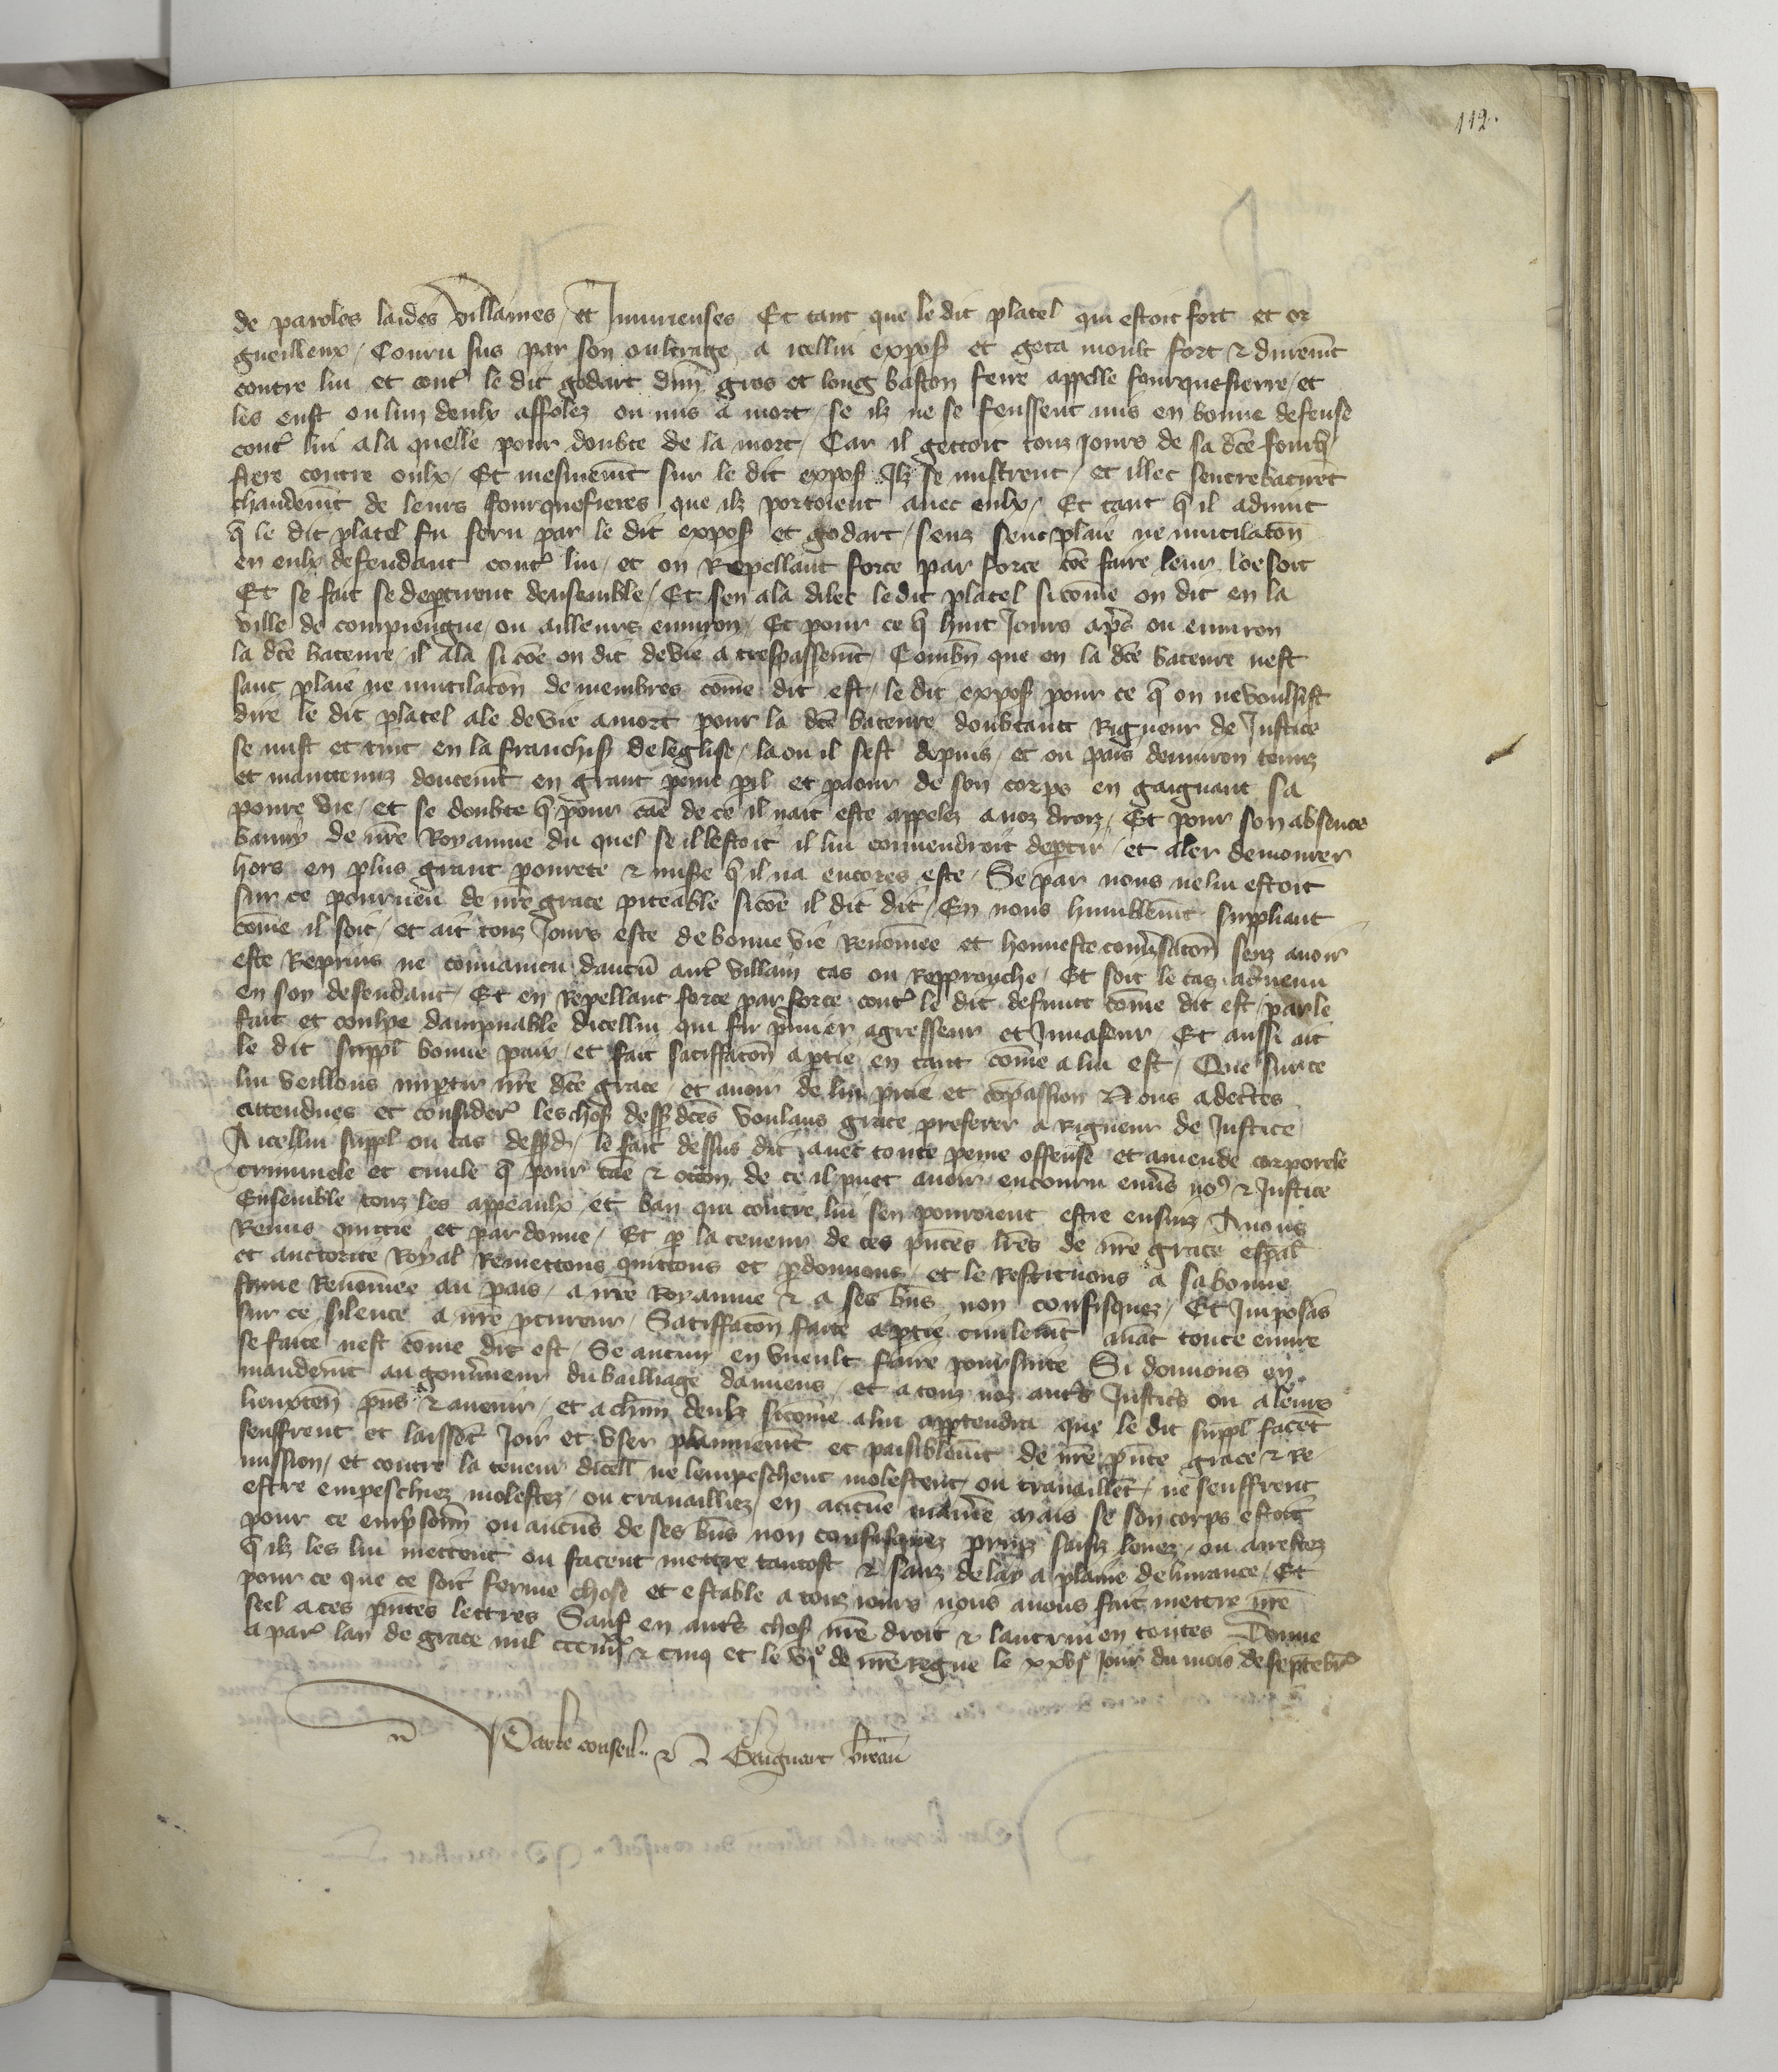 112.
de paroles laides villaines et Iniurieuses Et tant que le dit platel qui estoit fort et or
gueilleux / Couru sus par son oultrage a icellui expos̃ et geta moult fort & durem̃t
contre lui et cont͛ le dit godart dun gros et long baston ferre appelle fourquefierre / et
les eust ou lun deulx affolez ou mis a mort / se ilz ne se feussent mis en bonne defense
cont͛ lui a la quelle pour doubte de la mort / Car il gettoit touz Jours de sa dc̃e fourq̃
fiere contre eulx / Et mesmem̃t sur le dit expos̃ Ilz se mistrent / et illec sentrebatirẽt
chaudem̃t de leurs fourquefieres que ilz portoient auec eulx / Et tant q̃ il aduint
q̃ le dit platel fu feru par le dit expos̃ et godart / senz sanc plaie ne mutilacõn
en eulx defendant cont͛ lui / et en Repellant force par force cõe faire leur loesoit
Et se fait se dep̱tirent densemble / Et sen ala dilec le dit platel si cõme on dit en la
ville de compiengne / ou ailleurs enuiron / Et pour ce q̃ huit Jours ap̃s ou enuiron
la dc̃e bateure / il ala si cõe on dit de vie a trespassem̃t / Combñ que en la dc̃e bateure nest
sanc plaie ne mutilacõn de membres cõme dit est / le dit expos̃ pour ce q̃ on ne voulsist
dire le dit platel ale de vie a mort pour la dc̃e bateure doubtant Rigueur de Justice
se mist et tint en la franchis̃ de leglise / la ou il sest depuis / et ou pais denuiron tenuz
et maintenuz doutem̃t en grant peine p̱il et paour de son corps en gaignant sa
poure vie / et se doubte q̃ pour cãe de ce il nait este appelez a noz droiz / Et pour son absence
banny de nr̃e Royaume du quel se il lestoit il lui conuendroit dep̱tir / et aler demourer
hors en plus grant pourete & mis̃e q̃ il na encores este / Se par nous ne lui estoit
sur ce pourueu de nr̃e grace piteable sicõe il dit dit / En nous humblem̃t suppliant
cõme il soit / et ait touz Jours este de bonne vie Renõmee et honneste conũsacõn senz auoir
este Reprins ne conuaincu daucũ aut͛ villain cas ou Repprouche / Et soit le cas aduenu
en son defendant / Et en Repellant force par force cont͛ le dit defunct cõme dit est / par le
fait et coulpe dampnable dicellui qui fu p̃mier agresseur et Inuaseur / Et aussi ait
le dit suppl̃ bonne paix / et fait satiffacõn a p̱tie en tant cõme a lui est / Que sur ce
lui veillons imp̱tir nr̃e dc̃e grace / et auoir de lui pitie et cõpassion Nous adec̃tes
attendues et consider͛ les chos̃ dess̃ dc̃es voulans grace preferer a Rigueur de Justice
A icellui suppl̃ ou cas dess̃d̃ / le fait dessus dit auec toute peine offense et amende corporele
criminele et ciuile q̃ pour cãe & occõn de ce il puet auoir encouru enũs noꝰ & Justice
Ensemble touz les appeaulx et ban qui contre lui sen pouroient estre ensuiz Auons
Remis quictie et pardonne / Et p̱ la teneur de ces pñtes lr̃es de nr̃e grace esp̃al
et auctorite Royal Remettons quittons et p̱donnons / et le Restituons a sa bonne
fame Renõmee au pais / a nr̃e Royaume & a ses bñs non confisquez / Et Imposãs
sur ce silence a nr̃e p̱cureur / Satiffacõn faite a p̱tie ciuilem̃t auãt toute euure
se faite nest cõme dit est / Se aucun en vueult faire poursuite Si donnons en
mandem̃t au gouũneur du bailliage damiens / et a touz noz aut͛s Justic̃s ou a leurs
lieuxteñ pñs & auenir / et a chũn deulx sicõme a lui app̱tendra que le dit suppl̃ facẽt
seuffrent et laissẽt Joir et vser plainnem̃t et paisiblem̃t de nr̃e pñte grace & Re
mission / et contre la teneur dicell̃ ne lempeschent molestent / ou trauaillẽt / ne seuffrent
estre empeschiez molestez / ou trauailliez en aucune maniẽe mais se son corps estoit
pour ce emp̃sonñ ou aucuns de ses bñs non confisquez prins saisiz leuez / ou arrestez
q̃ ilz les lui mettent ou facent mettre tantost & sanz delay a plaine deliurance / Et
pour ce que ce soit ferme chose et estable a touz iours nous auons fait mettre nr̃e
seel a ces pñtes lettres Sauf en aut͛s chos̃ nr̃e droit & lautrui en toutes Donne
a par͛ lan de grace mil ccciiijˣˣ & cinq et le vjᵉ de nr̃e regne le xxvjᵉ Jour du mois de septẽbr͛
Par le conseil Gaignart